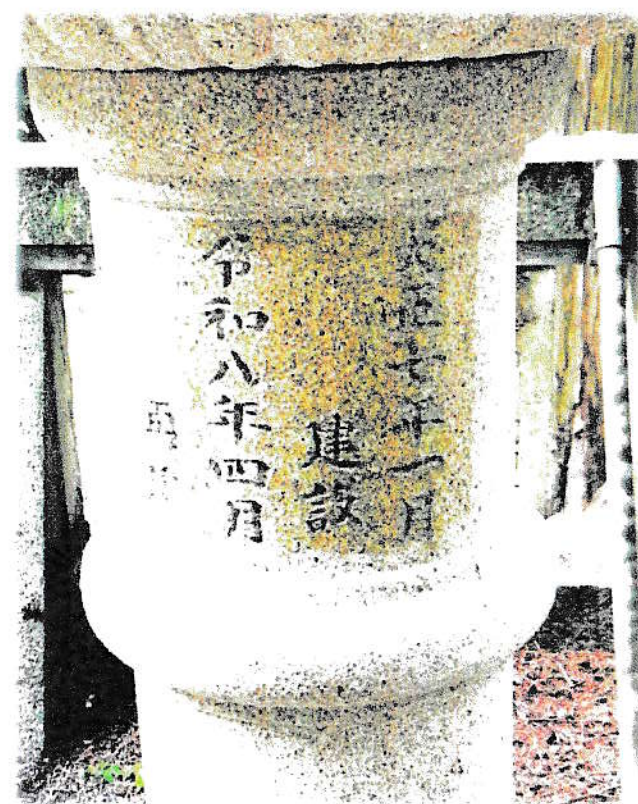 大正年一月
建設
令和八年四月